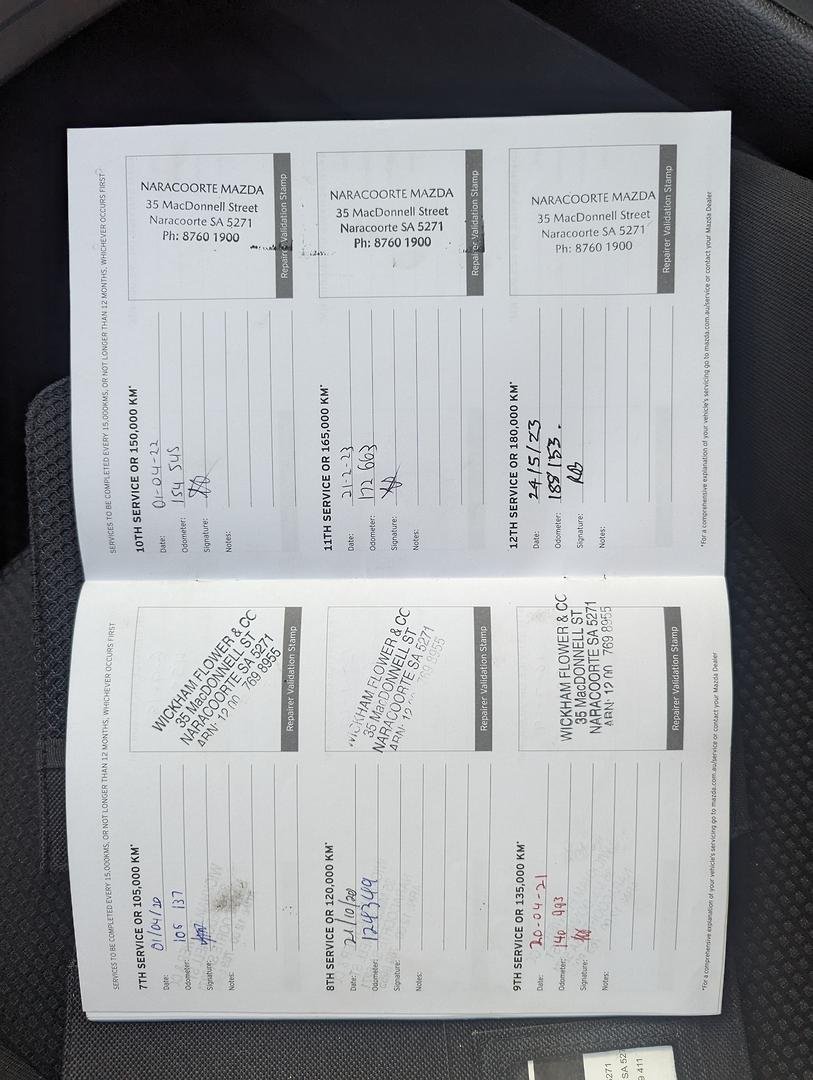 SERVICES TO BE COMPLETED EVERY 15,000KMS, OR NOT LONGER THAN 12 MONTHS, WHICHEVER OCCURS FIRST
7TH SERVICE OR 105,000 KM*
Date: 01/04/20
Odometer: 105 137
Signature:
Notes:
WICKHAM FLOWER & CO
35 MacDONNELL ST
NARACOORTE SA 5271
ABN: 12 00 769 8955
Repairer Validation Stamp
8TH SERVICE OR 120,000 KM*
Date: 21/10/20
Odometer: 124349
Signature:
Notes:
WICKHAM FLOWER & CO
35 MacDONNELL ST
NARACOORTE SA 5271
ABN: 12 00 769 8955
Repairer Validation Stamp
9TH SERVICE OR 135,000 KM*
Date: 20-04-21
Odometer: 140 993
Signature:
Notes:
WICKHAM FLOWER & CO
35 MacDONNELL ST
NARACOORTE SA 5271
ABN: 12 00 769 8955
Repairer Validation Stamp
*For a comprehensive explanation of your vehicle's servicing go to mazda.com.au/service or contact your Mazda Dealer
SERVICES TO BE COMPLETED EVERY 15,000KMS, OR NOT LONGER THAN 12 MONTHS, WHICHEVER OCCURS FIRST
10TH SERVICE OR 150,000 KM*
Date: 01-04-22
Odometer: 154 545
Signature:
Notes:
NARACOORTE MAZDA
35 MacDonnell Street
Naracoorte SA 5271
Ph: 8760 1900
Repairer Validation Stamp
11TH SERVICE OR 165,000 KM*
Date: 21-2-23
Odometer: 172 663
Signature:
Notes:
NARACOORTE MAZDA
35 MacDonnell Street
Naracoorte SA 5271
Ph: 8760 1900
Repairer Validation Stamp
12TH SERVICE OR 180,000 KM*
Date: 24/5/23
Odometer: 188 153.
Signature:
Notes:
NARACOORTE MAZDA
35 MacDonnell Street
Naracoorte SA 5271
Ph: 8760 1900
Repairer Validation Stamp
*For a comprehensive explanation of your vehicle's servicing go to mazda.com.au/service or contact your Mazda Dealer